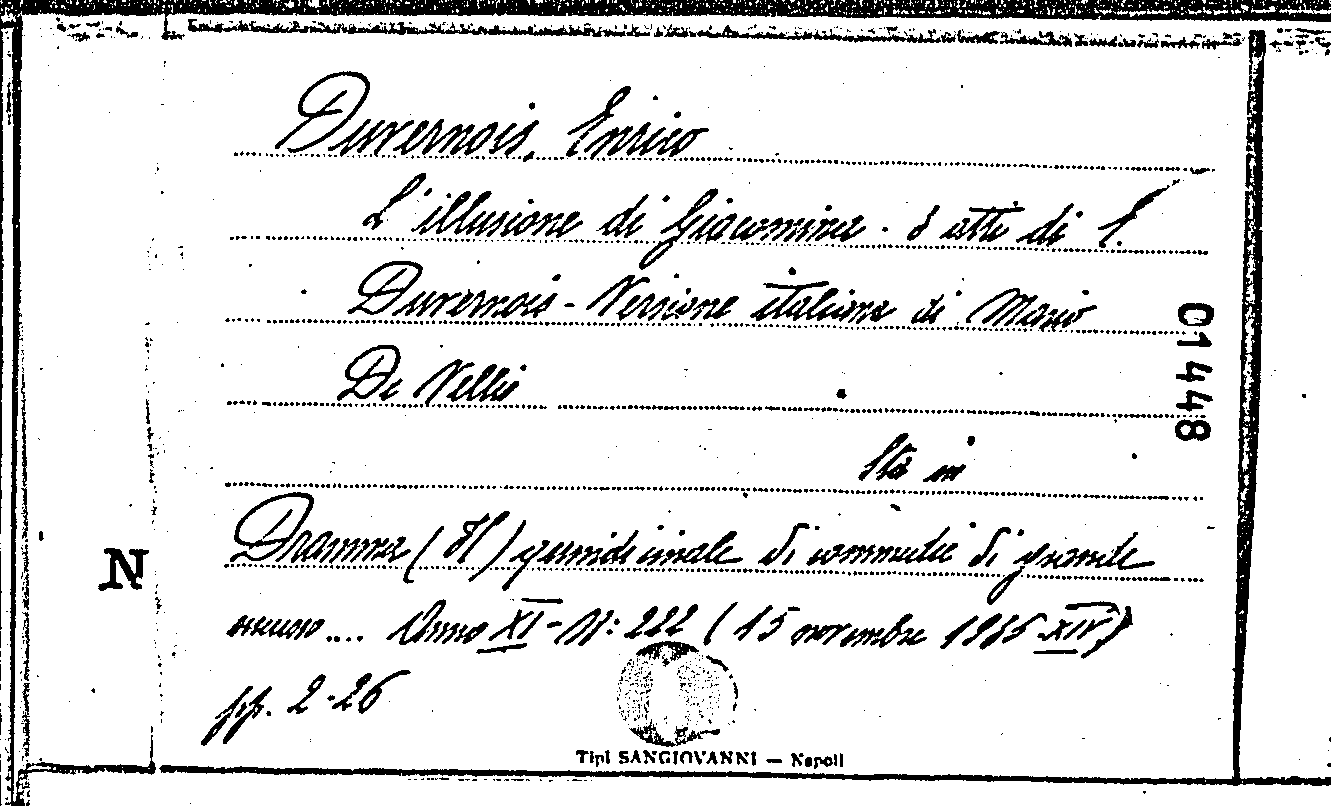 Duvernois, Enrico
L'illusione di Giacomina. 3 atti di E.
Duvernois - Versione italiana di Mario
De Vellis
Sta in
Dramma (Il) quindicinale di commedie di grande
.... Anno XI - N: 222 (15 novembre 1935 XIV)
pp. 2-26
N
01448
Tipi SANGIOVANNI — Napoli